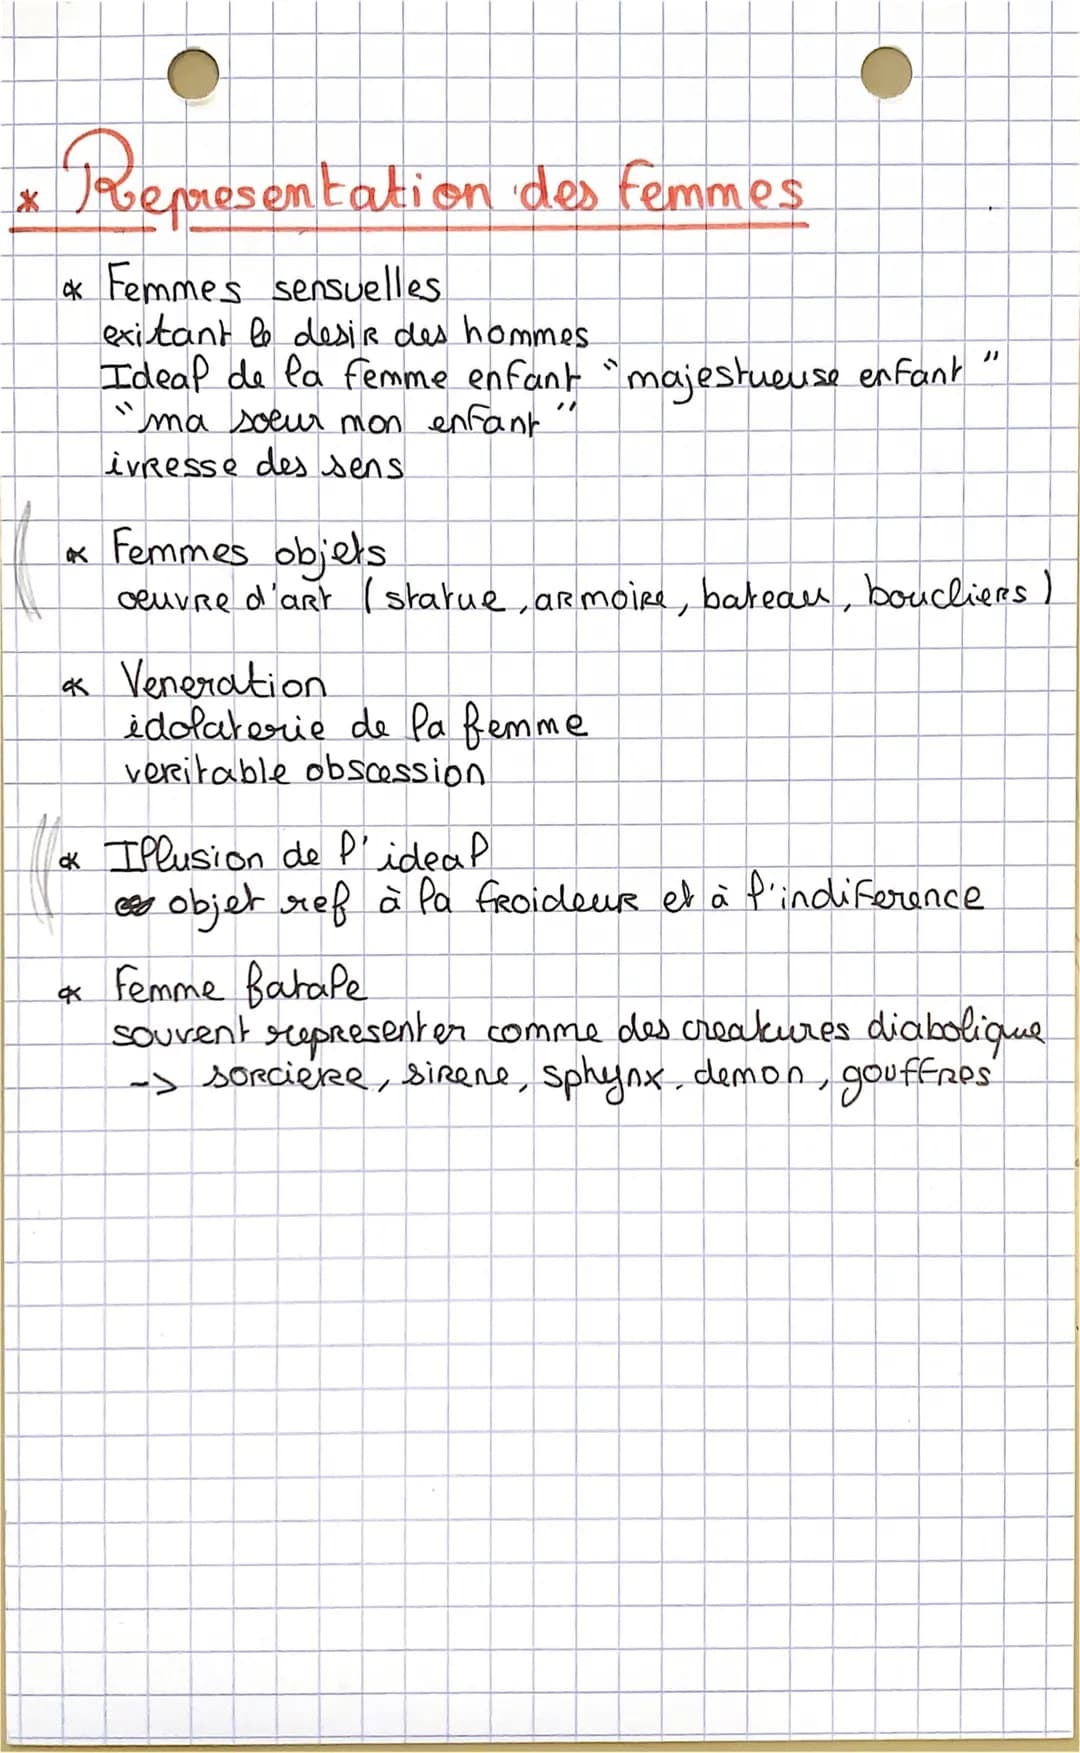 * Representation des femmes
* Femmes sensuelles
exitant le desir des hommes
Ideal de la femme enfant "majestueuse enfant"
"ma soeur mon enfant"
ivresse des sens
* Femmes objets
œuvre d'art (statue, armoire, bateau, boucliers)
* Veneration
idolaterie de la femme
veritable obscession
* Illusion de l'ideal
objet ref à la froideur et à l'indiference
* Femme fatale
souvent representer comme des creatures diabolique
-> sorciere, sirene, sphynx, demon, gouffres